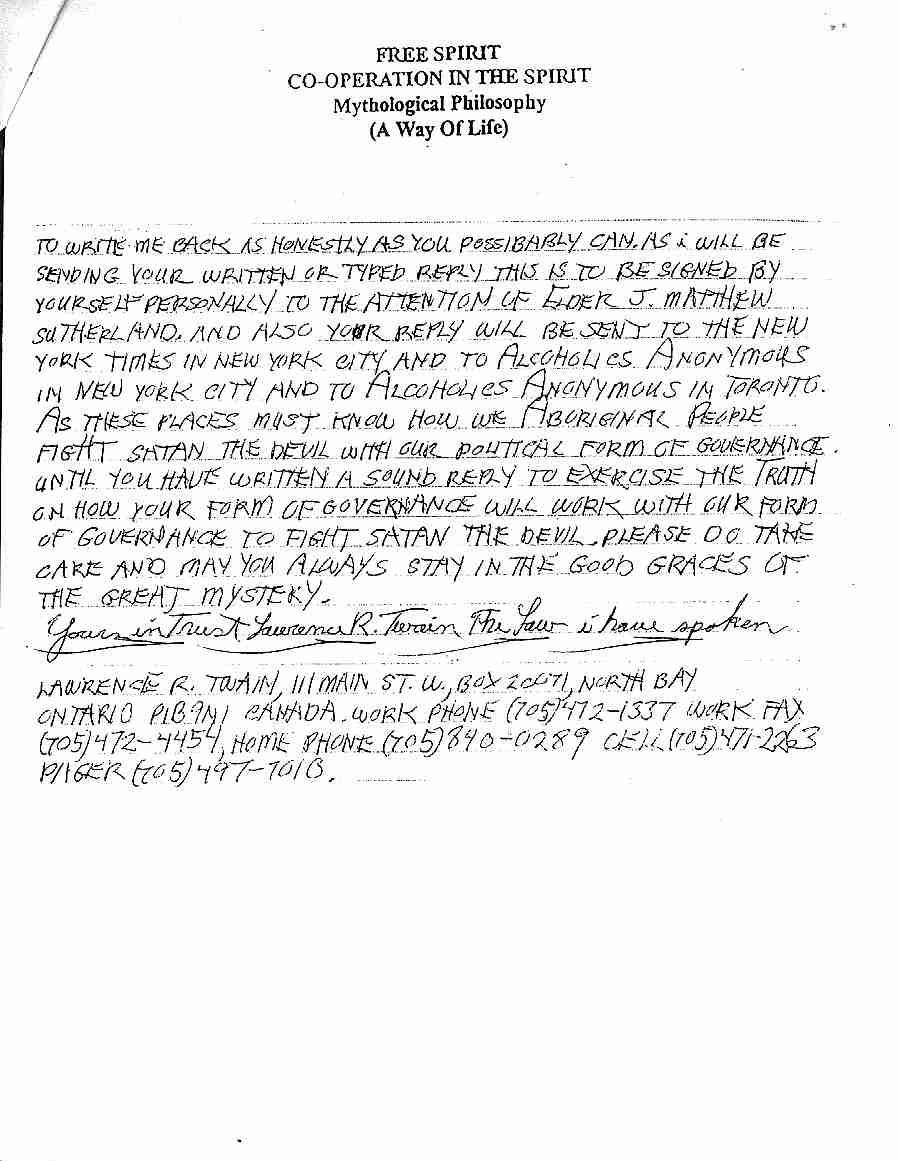 FREE SPIRIT
CO-OPERATION IN THE SPIRIT
Mythological Philosophy
(A Way Of Life)
TO WRITE ME BACK AS HONESTLY AS YOU POSSIBABLY CAN. AS i WILL BE
SENDING YOUR WRITTEN OR TYPED REPLY THIS IS TO BE SIGNED BY
YOURSELF PERSONALLY TO THE ATTENTION OF ELDER J. MATTHEW
SUTHERLAND. AND ALSO YOUR REPLY WILL BE SENT TO THE NEW
YORK TIMES IN NEW YORK CITY AND TO ALCOHOLICS ANONYMOUS
IN NEW YORK CITY AND TO ALCOHOLICS ANONYMOUS IN TORONTO.
AS THESE PLACES MUST KNOW HOW WE ABORIGINAL PEOPLE
FIGHT SATAN THE DEVIL WITH OUR POLITICAL FORM OF GOVERNANCE.
UNTIL YOU HAVE WRITTEN A SOUND REPLY TO EXERCISE THE TRUTH
ON HOW YOUR FORM OF GOVERNANCE WILL WORK WITH OUR FORM
OF GOVERNANCE TO FIGHT SATAN THE DEVIL. PLEASE DO TAKE
CARE AND MAY YOU ALWAYS STAY IN THE GOOD GRACES OF
THE GREAT MYSTERY.
Yours in Trust Lawrence R. Twain The Law i have spoken
LAWRENCE R. TWAIN, 111 MAIN ST. W., BOX 20071, NORTH BAY
ONTARIO P1B 9N1 CANADA. WORK PHONE (705) 472-1337 WORK FAX
(705) 472-4454, HOME PHONE (705) 840-0289 CELL (705) 471-2263
PAGER (705) 497-7018.